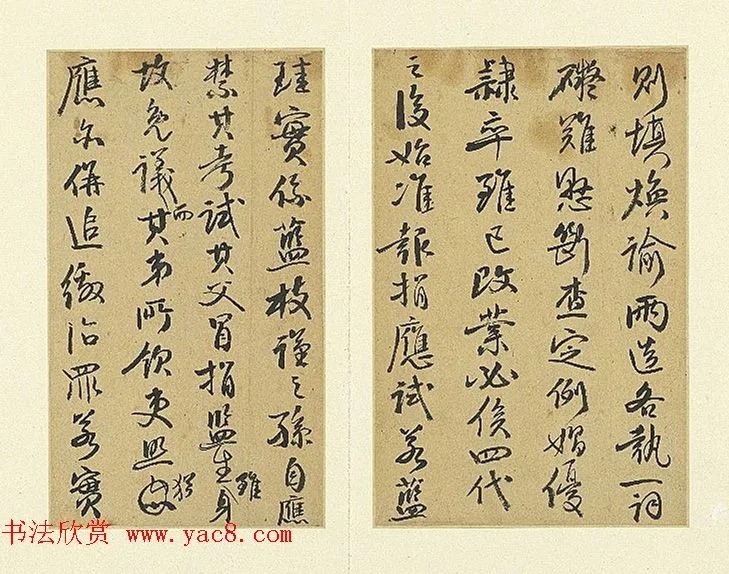 则填焕谕兩造各執一詞
礙難懸斷查定例娼優
隸卒雖已改業必俟四代
之後始准報捐應試若藍
珪實係藍枝謹之孫自應
禁其考試其父冒捐監生雖身
故免議而其弟所飲吏照猶
應永併追繳治罪若實
书法欣赏 www.yac8.com